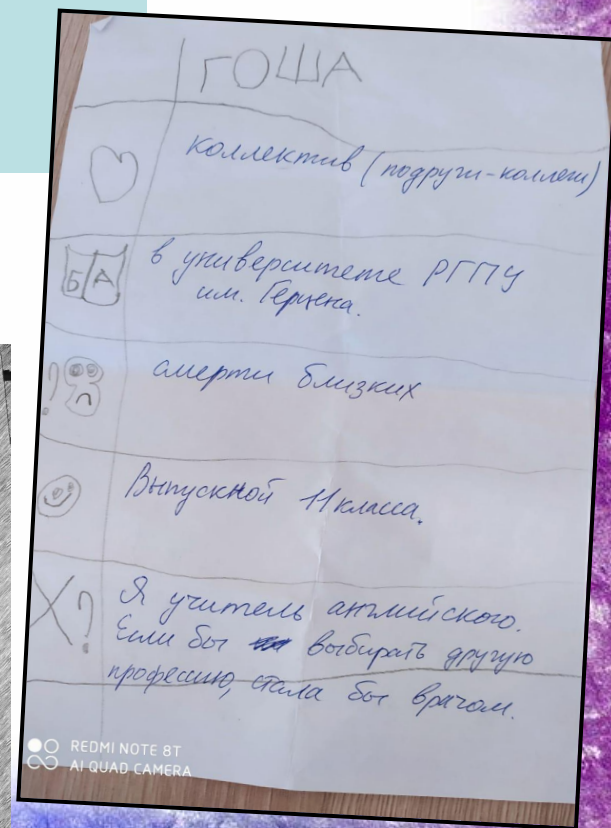 ГОША
коллектив (подруги-коллеги)
Б А
в университете РГПУ
им. Герцена.
?
смерти близких
Выпускной 11 класса.
Х?
Я учитель английского.
Если бы выбирать другую
профессию, стала бы врачом.
REDMI NOTE 8T
AI QUAD CAMERA